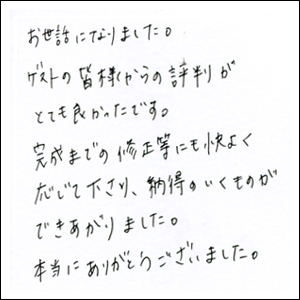 お世話になりました。
ゲストの皆様からの評判が
とても良かったです。
完成までの修正等にも快よく
応じて下さり、納得のいくものが
できあがりました。
本当にありがとうございました。